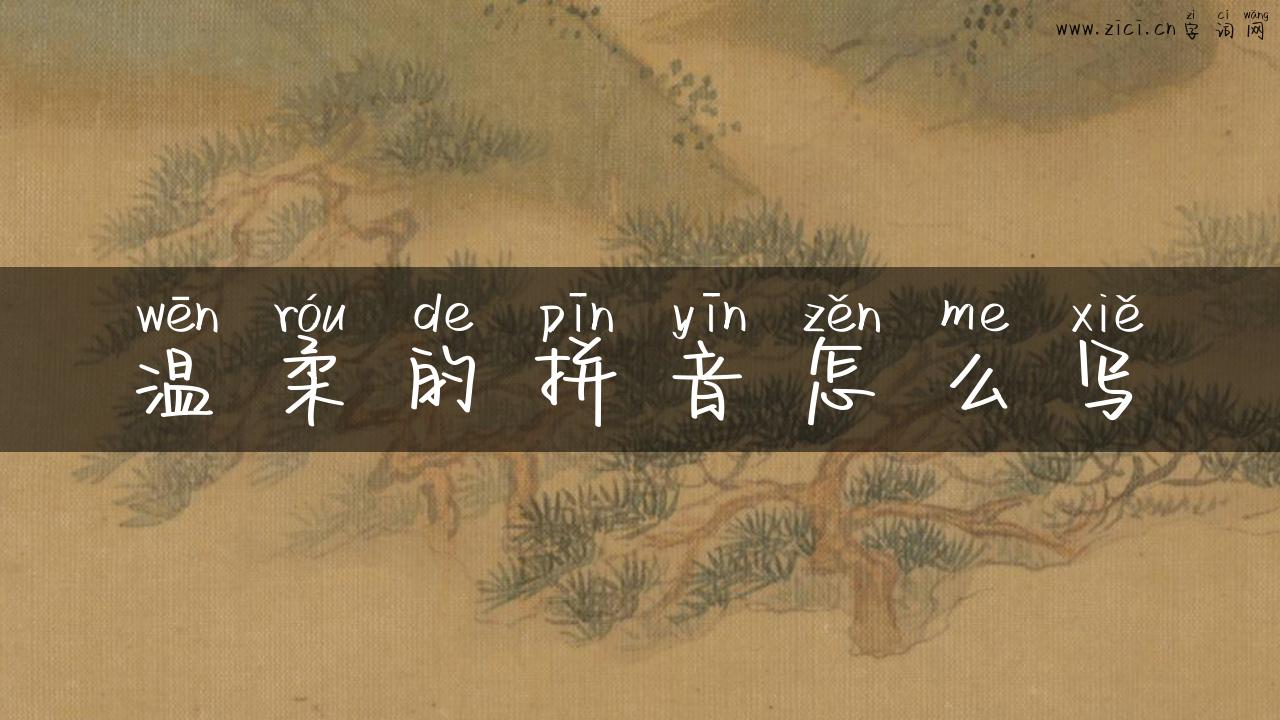 zì cí wǎng
www.zici.cn 字词网
wēn róu de pīn yīn zěn me xiě
温柔的拼音怎么写